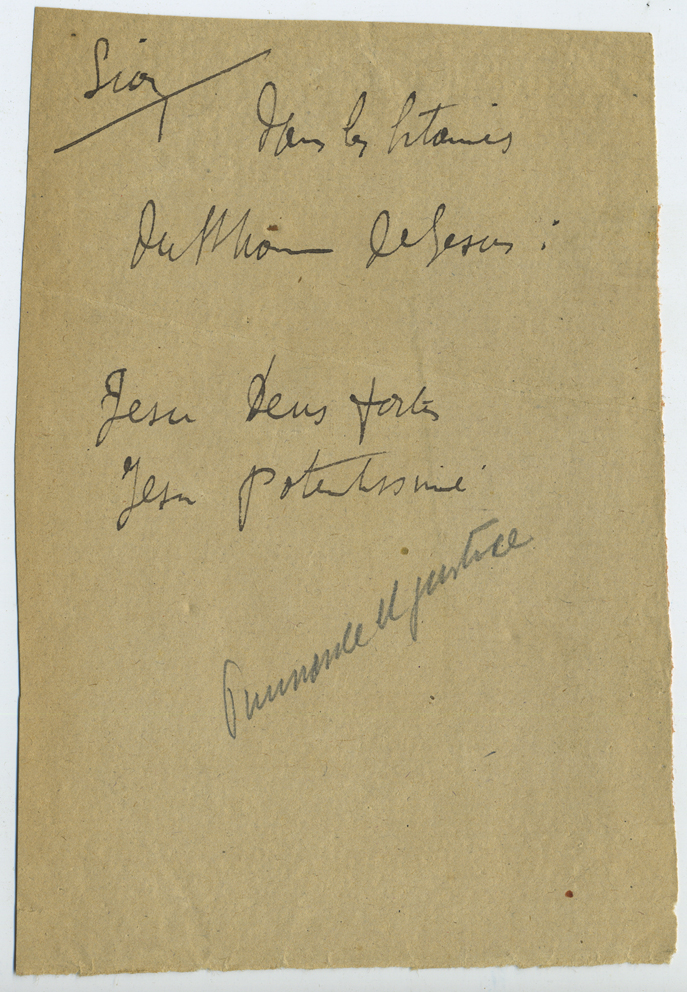 Sion
Dans les litanies
du St Nom de Jesus :
Jesu Deus fortis
Jesu potentissime
et justice